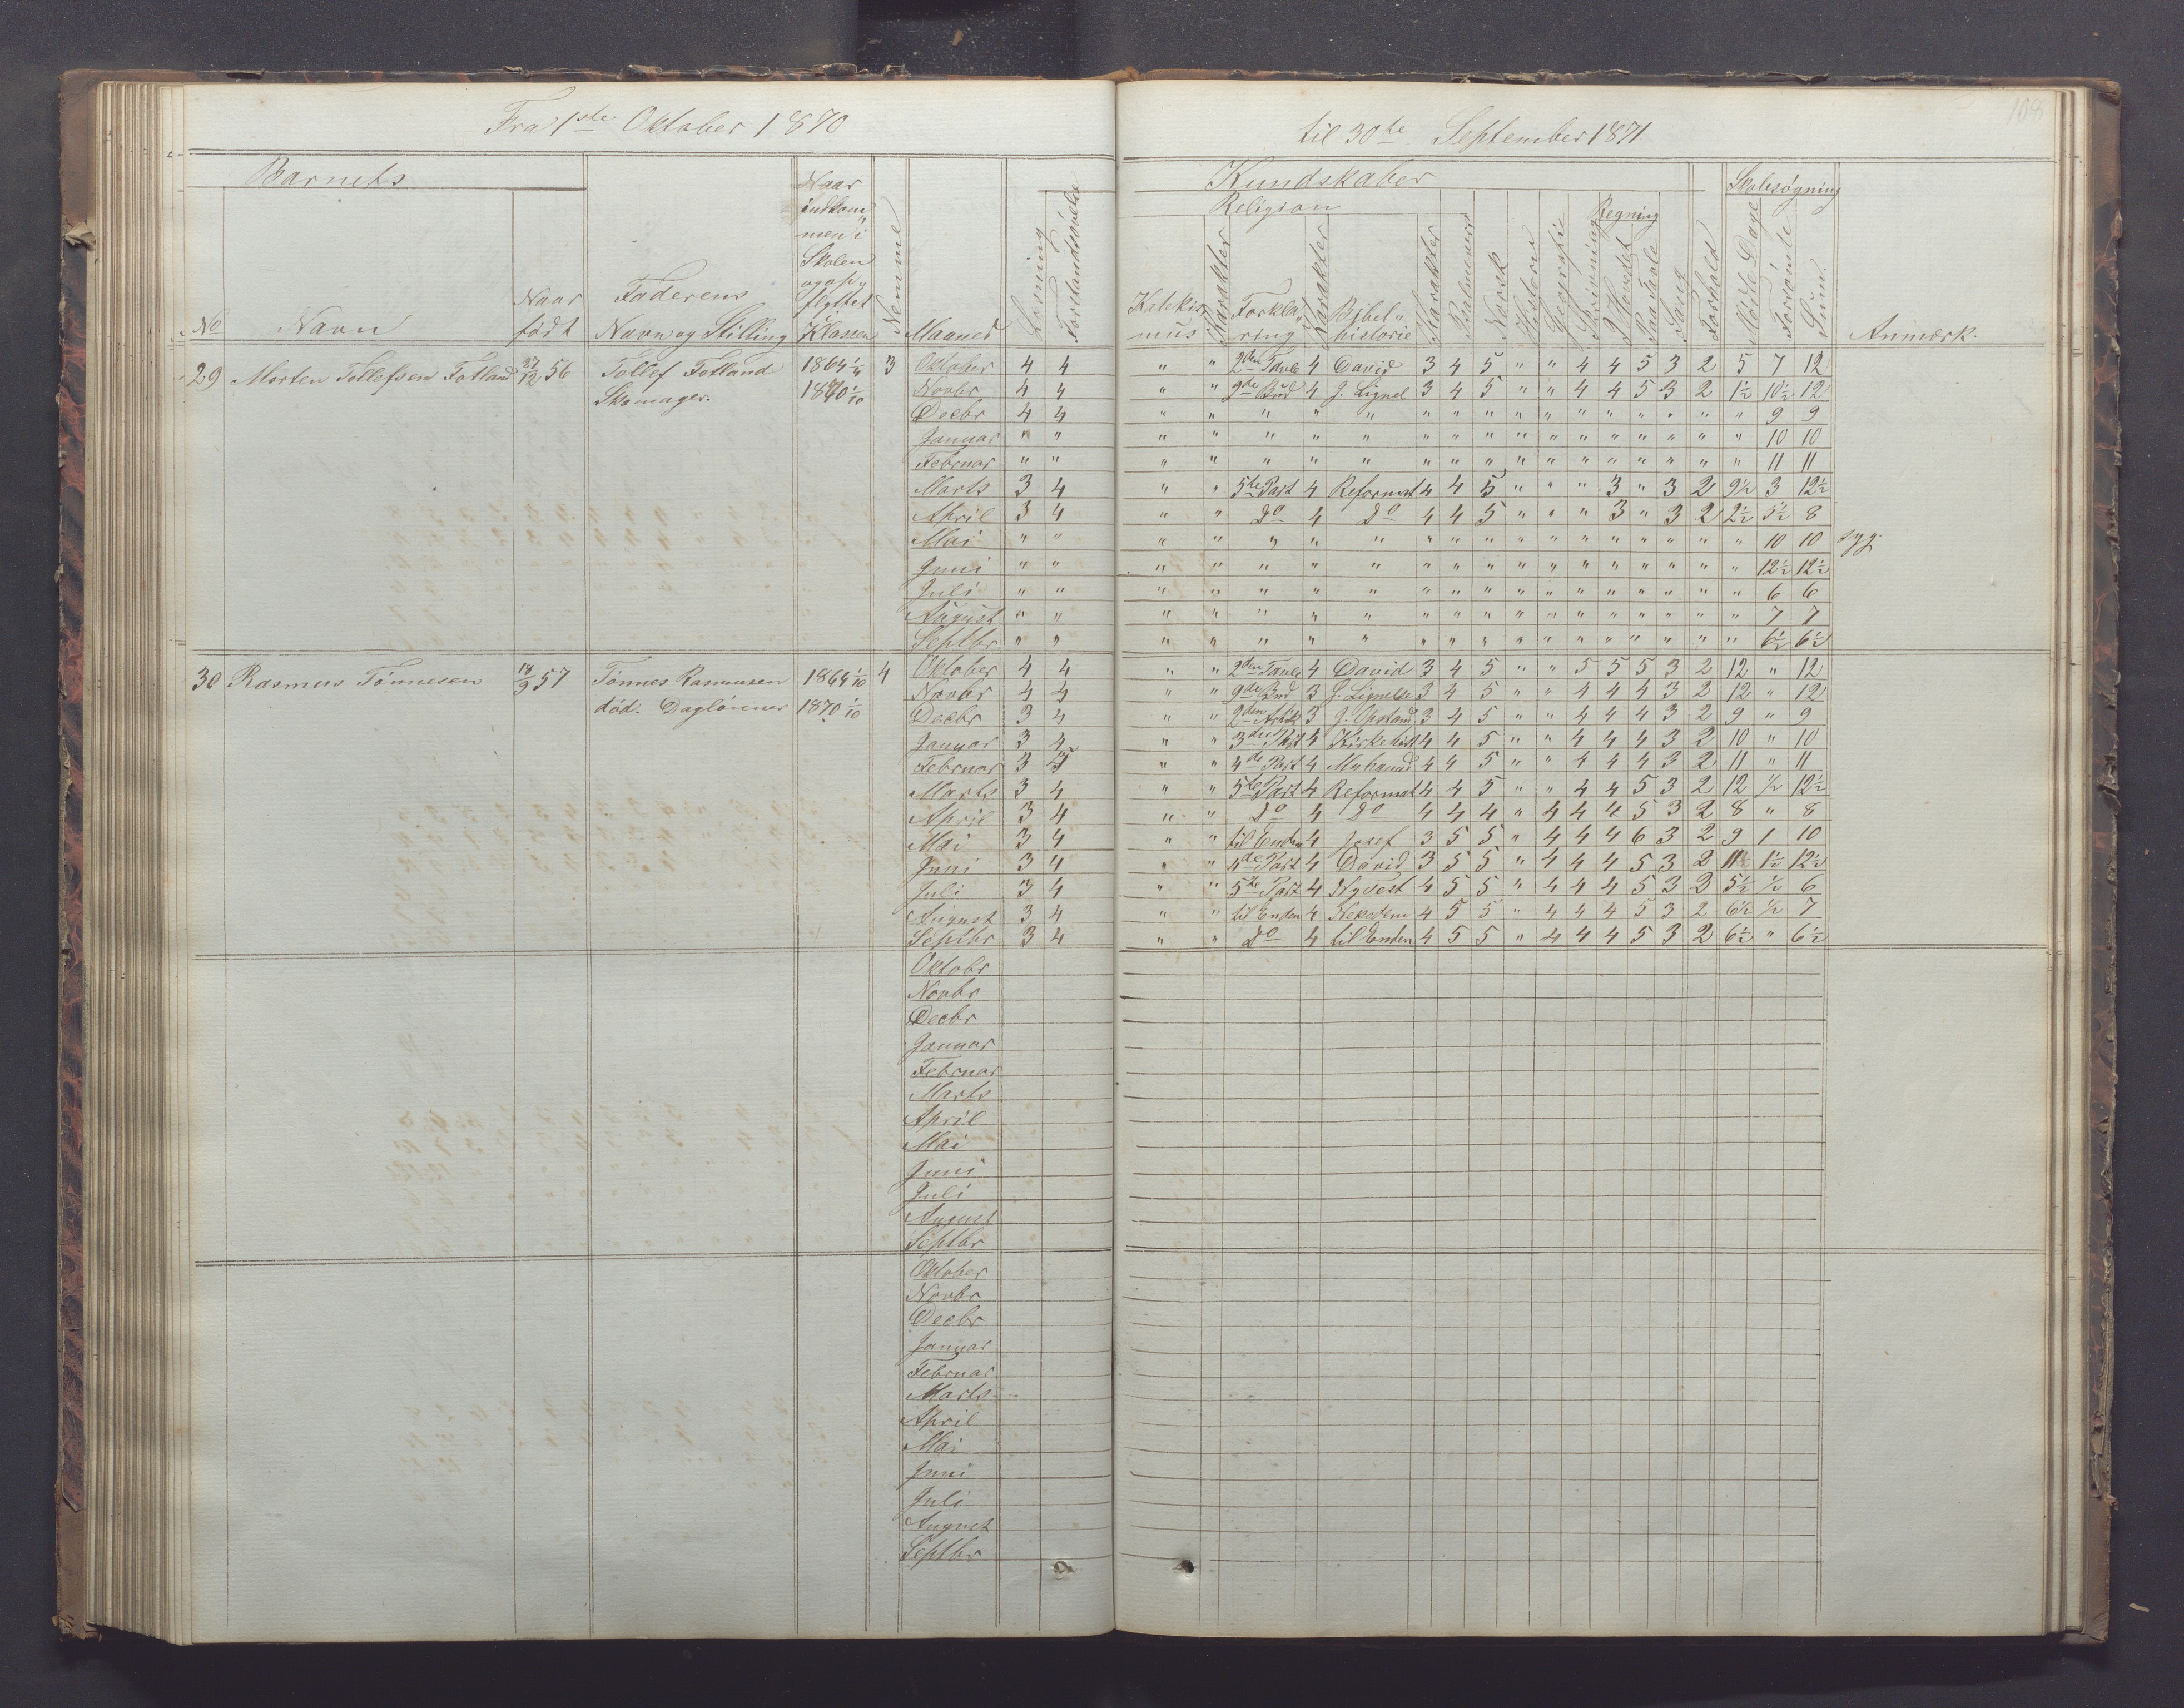 Fra 1ste Oktober 1870
til 30te September 1871
108
Barnets
Kundskaber
Skolesøgning
Religion
Regning
No
Navn
Naar født
Faderens Navn og Stilling
Naar indkommen i Skolen og opflyttet i Klassen
Nemme
Maaned
Læsning
Forstandsøvelse
Katekismus
Karakter
Forklaring
Karakter
Bibelhistorie
Karakter
Psalmevers
Norsk
Historie
Geografie
Skrivning
I Hovedet
Paa Tavle
Sang
Forhold
Mødte Dage
Forsømte
Sum
Anmærk.
29 Morten Tollefsen Fotland 27/12 56 Tollef Fotland 1864 1/4 3 Oktober 4 4 " " 2den Tavle 4 David 3 4 5 " " 4 4 5 3 2 5 7 12
Skomager. 1870 1/10 Novbr 4 4 " " 9de Bud 4 J. Lignel 3 4 5 " " 4 4 5 3 2 1½ 10½ 12
Decbr 4 4 " " " " " " " " " " " " " " " " 9 9
Januar " " " " " " " " " " " " " " " " " " 10 10
Februar " " " " " " " " " " " " " " " " " " 11 11
Marts 3 4 " " 5te Part 4 Reformat 4 4 5 " " " 3 " 3 2 9½ 3 12½
April 3 4 " " Do 4 Do 4 4 5 " " " 3 " 3 2 2½ 5½ 8
Mai " " " " " " " " " " " " " " " " " " 10 10 syg.
Juni " " " " " " " " " " " " " " " " " " 12½ 12½
Juli " " " " " " " " " " " " " " " " " " 6 6
August " " " " " " " " " " " " " " " " " " 7 7
Septbr " " " " " " " " " " " " " " " " " " 6½ 6½
30 Rasmus Tønnesen 18/9 57 Tønnes Rasmusen 1864 1/10 4 Oktober 4 4 " " 2den Tavle 4 David 3 4 5 " " 5 5 5 3 2 12 " 12
død. Dagløinner 1870 1/10 Novbr 4 4 " " 9de Bud 3 J. Lignelse 3 4 5 " " 4 4 4 3 2 12 " 12
Decbr 3 4 " " 2den Artik 3 J. Opstand 3 4 5 " " 4 4 4 3 2 9 " 9
Januar 3 4 " " 3die Part 4 Kirkehist 4 4 5 " " 4 4 4 3 2 10 " 10
Februar 3 3 " " 4de Part 4 4 4 5 " " 4 4 4 3 2 11 " 11
Marts 3 4 " " 5te Part 4 Reformat 4 4 5 " " 4 4 5 3 2 12 ½ 12½
April 3 4 " " Do 4 Do 4 4 4 " 4 4 4 5 3 2 8 " 8
Mai 3 4 " " til Enden 4 Josef 3 5 5 " 4 4 4 6 3 2 9 1 10
Juni 3 4 " " 4de Part 4 David 3 5 5 " 4 4 4 5 3 2 11 1½ 12½
Juli 3 4 " " 5te Part 4 Ny Test 4 5 5 " 4 4 4 5 3 2 5½ ½ 6
August 3 4 " " til Enden 4 4 5 5 " 4 4 4 5 3 2 6½ ½ 7
Septbr 3 4 " " Do 4 til Enden 4 5 5 " 4 4 4 5 3 2 6½ " 6½
Oktobr
Novbr
Decbr
Januar
Februar
Marts
April
Mai
Juni
Juli
August
Septbr
Oktober
Novbr
Decbr
Januar
Februar
Marts
April
Mai
Juni
Juli
August
Septbr